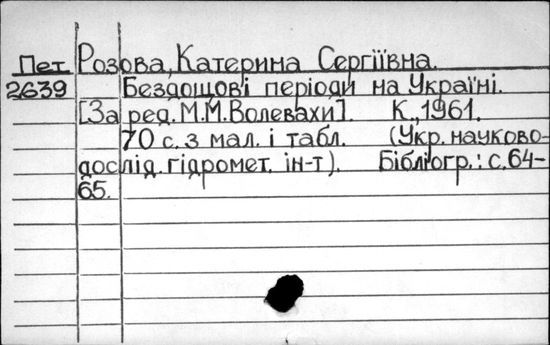 Пет Розова, Катерина Сергіївна.
2639 Бездощові періоди на Україні.
[За ред. М.М.Волевахи]. К., 1961.
70 с. з мал. і табл. (Укр. науково-
дослід. гідромет. ін-т). Бібліогр.: с. 64-
65.